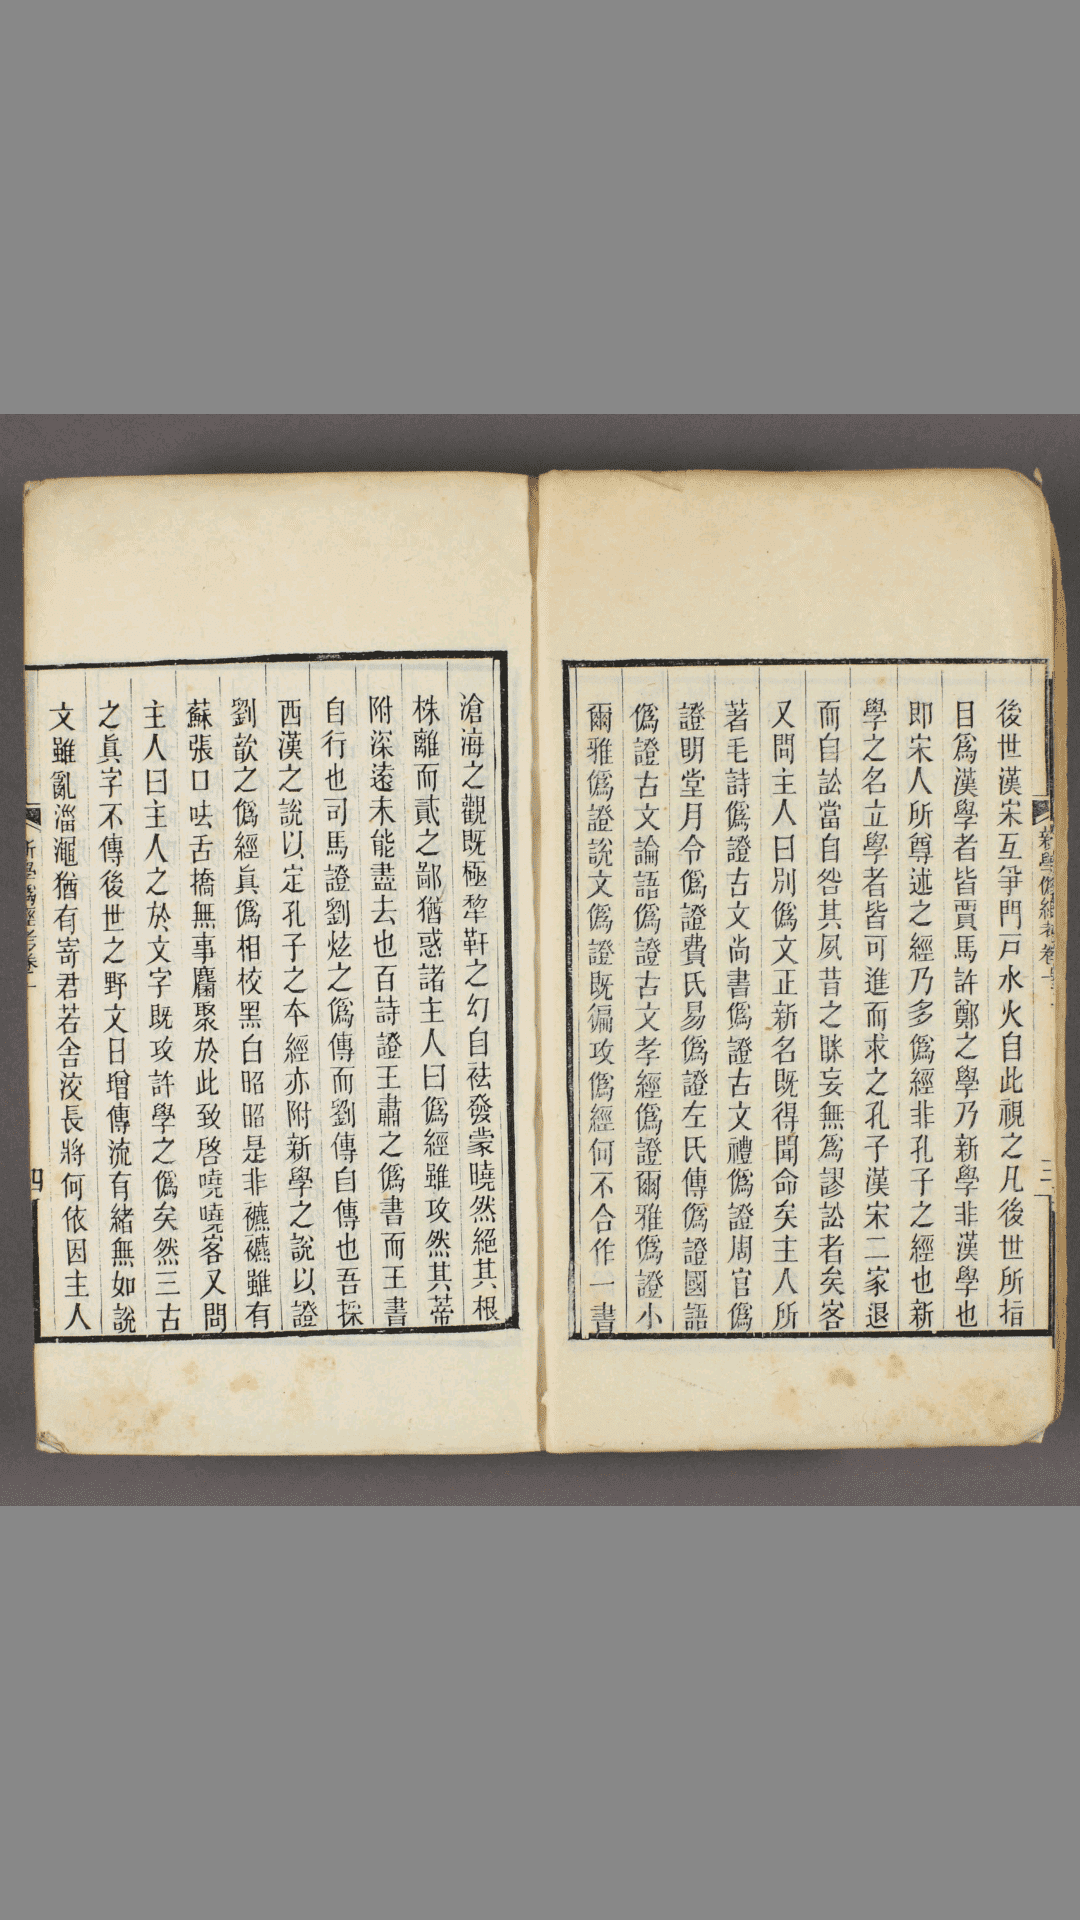 新學僞經考卷一
三
後世漢宋互爭門戸水火自此視之凡後世所指
目爲漢學者皆賈馬許鄭之學乃新學非漢學也
即宋人所尊述之經乃多僞經非孔子之經也新
學之名立學者皆可進而求之孔子漢宋二家退
而自訟當自咎其夙昔之眯妄無爲謬訟者矣客
又問主人曰別僞文正新名既得聞命矣主人所
著毛詩僞證古文尚書僞證古文禮僞證周官僞
證明堂月令僞證費氏易僞證左氏傳僞證國語
僞證古文論語僞證古文孝經僞證爾雅僞證小
爾雅僞證說文僞證既徧攻僞經何不合作一書
滄海之觀既極犂靬之幻自袪發蒙曉然絕其根
株離而貳之鄙猶惑諸主人曰僞經雖攻然其蒂
附深遠未能盡去也百詩證王肅之僞書而王書
自行也司馬證劉炫之僞傳而劉傳自傳也吾採
西漢之說以定孔子之本經亦附新學之說以證
劉歆之僞經眞僞相校黑白昭昭是非襹襹雖有
蘇張口呿舌撟無事麕聚於此致啓嘵嘵客又問
主人曰主人之於文字既攻許學之僞矣然三古
之眞字不傳後世之野文日增傳流有緒無如說
文雖亂淄澠猶有寄君若舍洨長將何依因主人
新學僞經考卷一
四